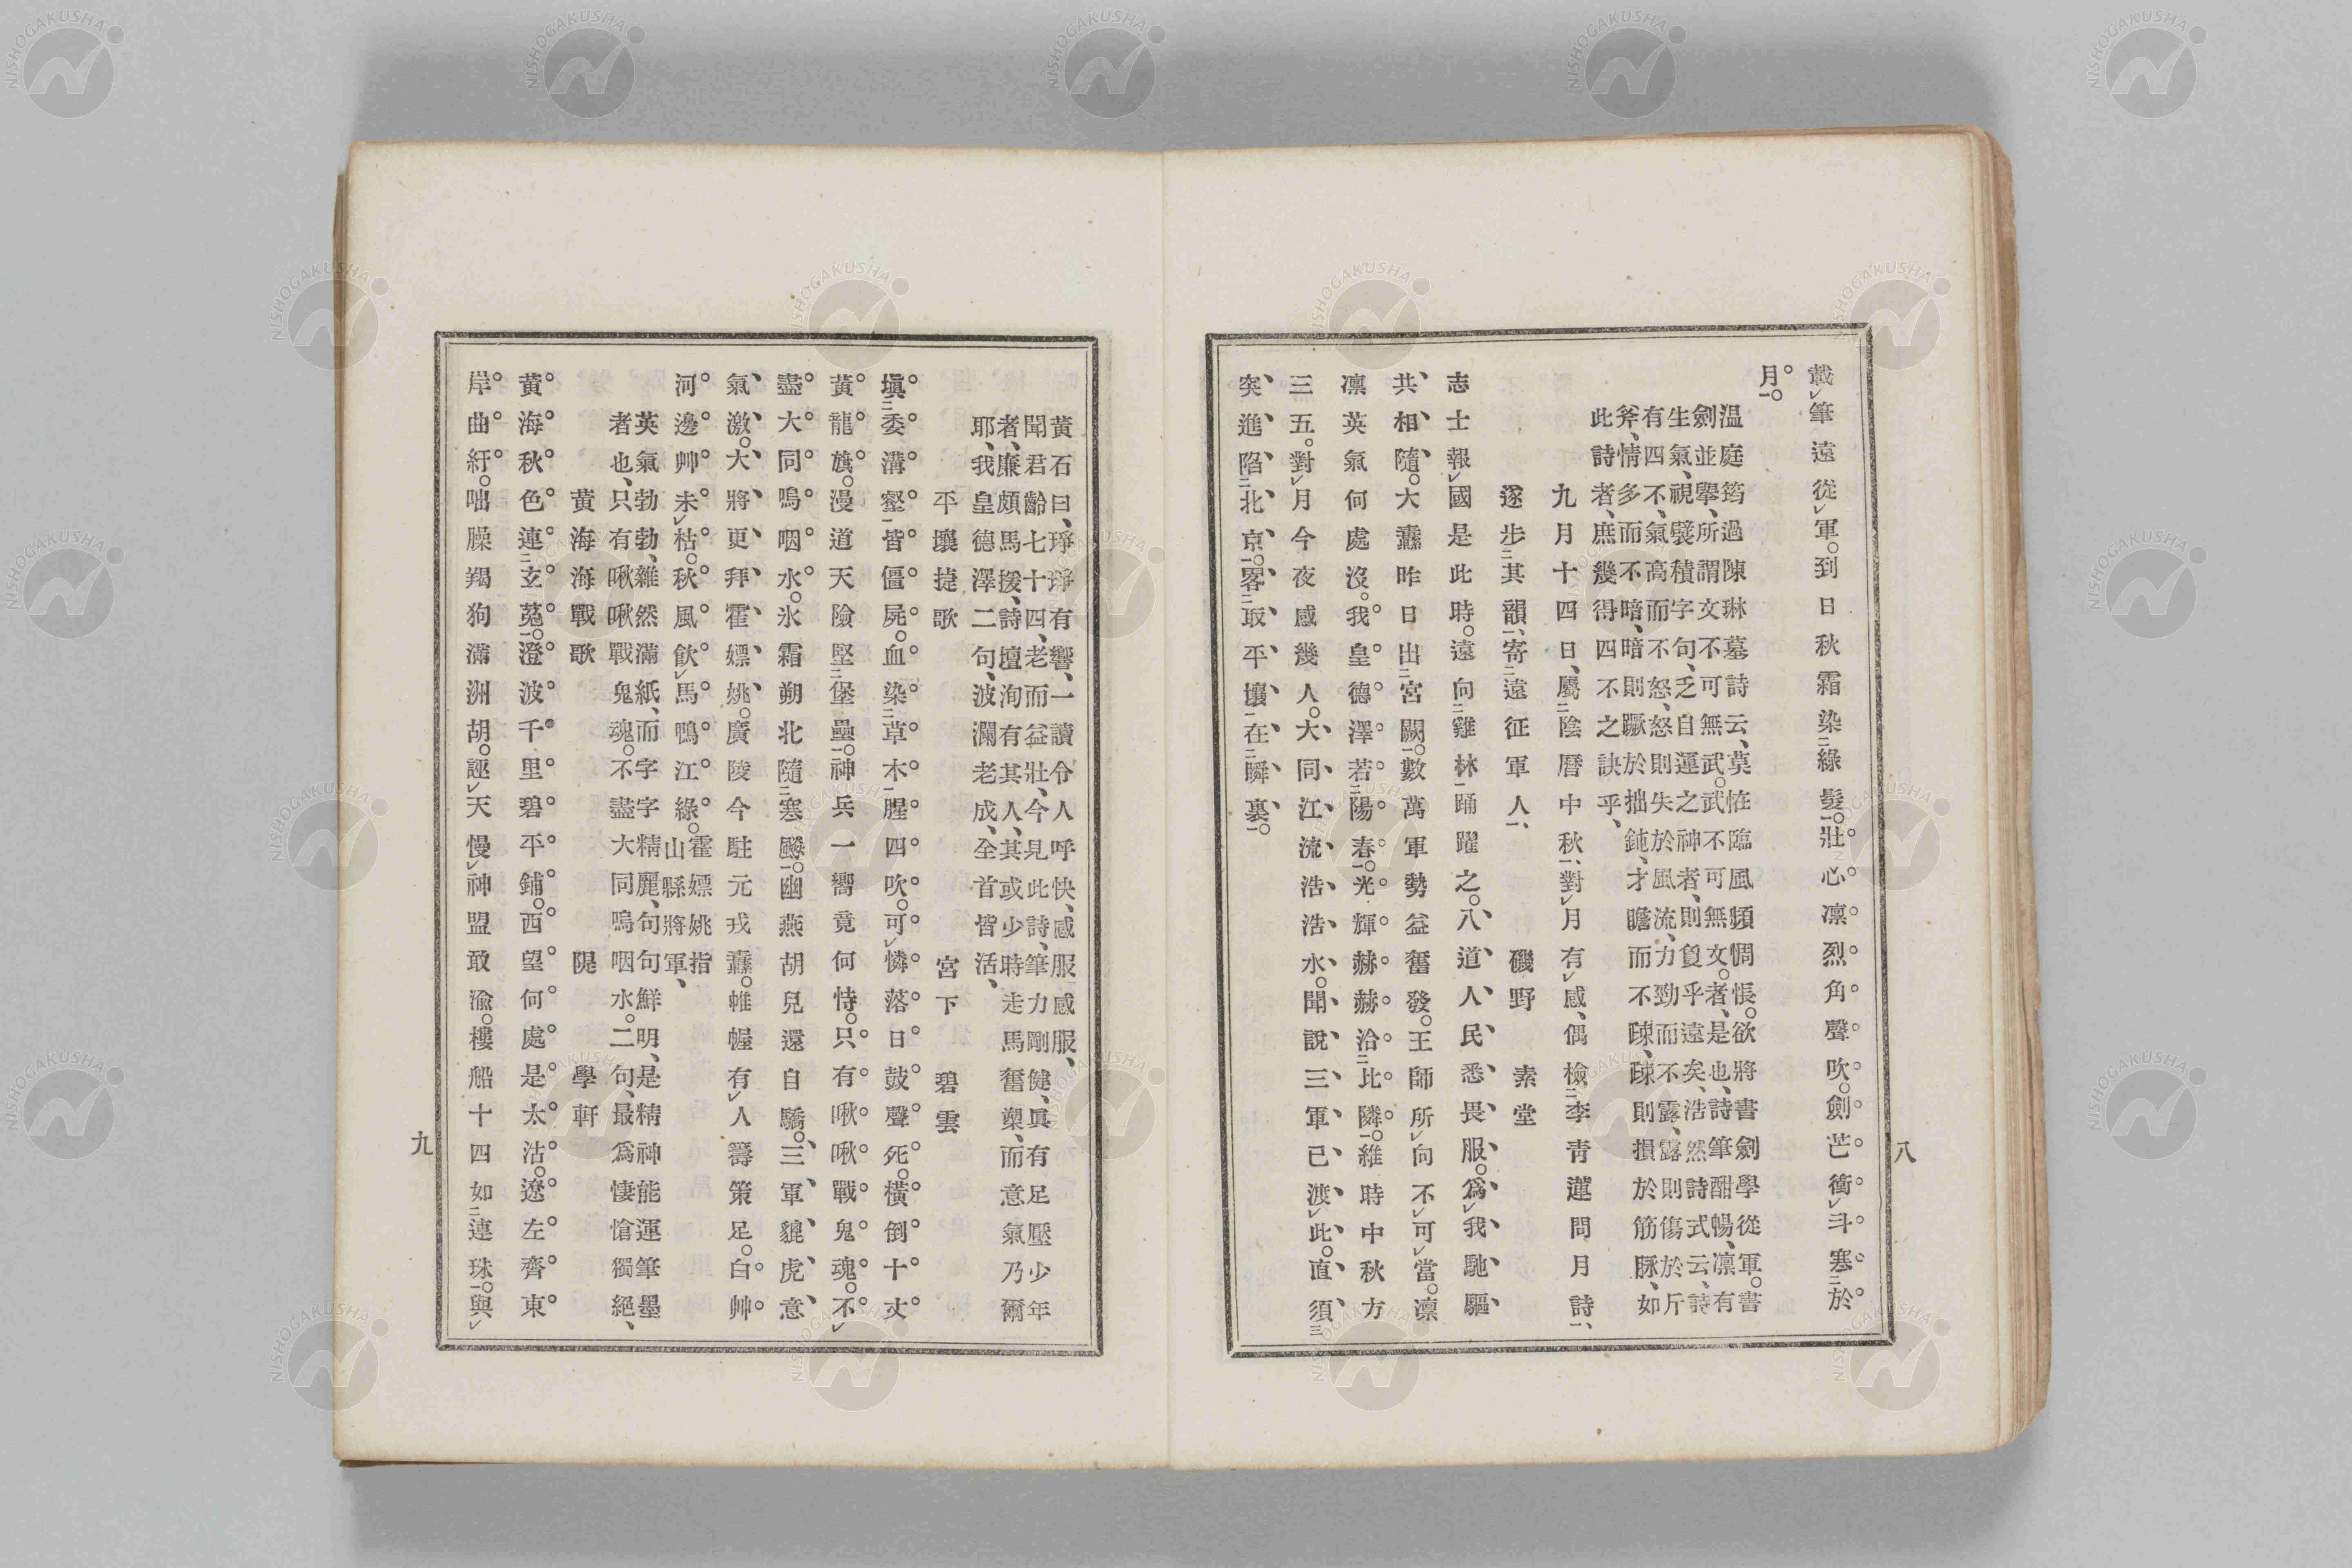 戴筆遠從軍。到日秋霜染綠髮。壯心凛烈角聲吹。劍芒衝斗塞於
月。
温庭筠過陳琳墓詩云、莫恠臨風頻惆悵。欲將書劍學從軍。書
劍並擧、所謂文不可無武。武不可無文。者、是也、詩筆酣暢、凛有
生氣、視襞積字句、乏自運之神者、則敻乎遠矣、浩然詩式云、詩
有四不、氣高而不怒、怒則失於風流、力勁而不露、露則傷於斤
斧、情多而不暗、暗則蹶於拙鈍、才贍而不疎、疎則損於筋脉、如
此詩者、庶幾得四不之訣乎、
九月十四日、屬陰曆中秋、對月有感、偶檢李靑蓮問月詩、
遂步其韻、寄遠征軍人、 磯野素堂
志士報國是此時。遠向雞林踊躍之。八道人民悉畏服。爲我馳驅
共相隨。大纛昨日出宮闕。數萬軍勢益奮發。王師所向不可當。凛
凛英氣何處沒。我皇德澤若陽春。光輝赫赫洽比隣。維時中秋方
三五。對月今夜感幾人。大同江流浩浩水。聞說三軍已渡此。直須
突進陷北京。畧取平壤在瞬裏。
八
黃石曰、琤琤有響、一讀令人呼快、感服感服、
聞君齡七十四、老而益壯、今見此詩、筆力剛健、眞有足壓少年
者、廉頗馬援、詩壇洵有其人、其或少時走馬奮槊、而意氣乃爾
耶、我皇德澤二句、波瀾老成、全首皆活、
平壤捷歌 宮下碧雲
塡委溝壑皆僵屍。血染草木腥四吹。可憐落日鼓聲死。橫倒十丈
黃龍旗。漫道天險堅堡壘。神兵一嚮竟何恃。只有啾啾戰鬼魂。不
盡大同嗚咽水。氷霜朔北隨塞飈。幽燕胡兒還自驕。三軍貔虎意
氣激。大將更拜霍嫖姚。廣陵今駐元戎纛。帷幄有人籌策足。白艸
河邊艸未枯。秋風飮馬鴨江綠。霍嫖姚指山縣將軍、
英氣勃勃、離然滿紙、而字字精麗、句句鮮明、是精神能運筆墨
者也、只有啾啾戰鬼魂。不盡大同嗚咽水。二句、最爲悽愴獨絕、
黃海海戰歌 隄學軒
黃海秋色連玄菟。澄波千里碧平鋪。西望何處是太沽。遼左齊東
岸曲紆。咄臊羯狗滿洲胡。誣天慢神盟敢渝。樓船十四如連珠。與
九